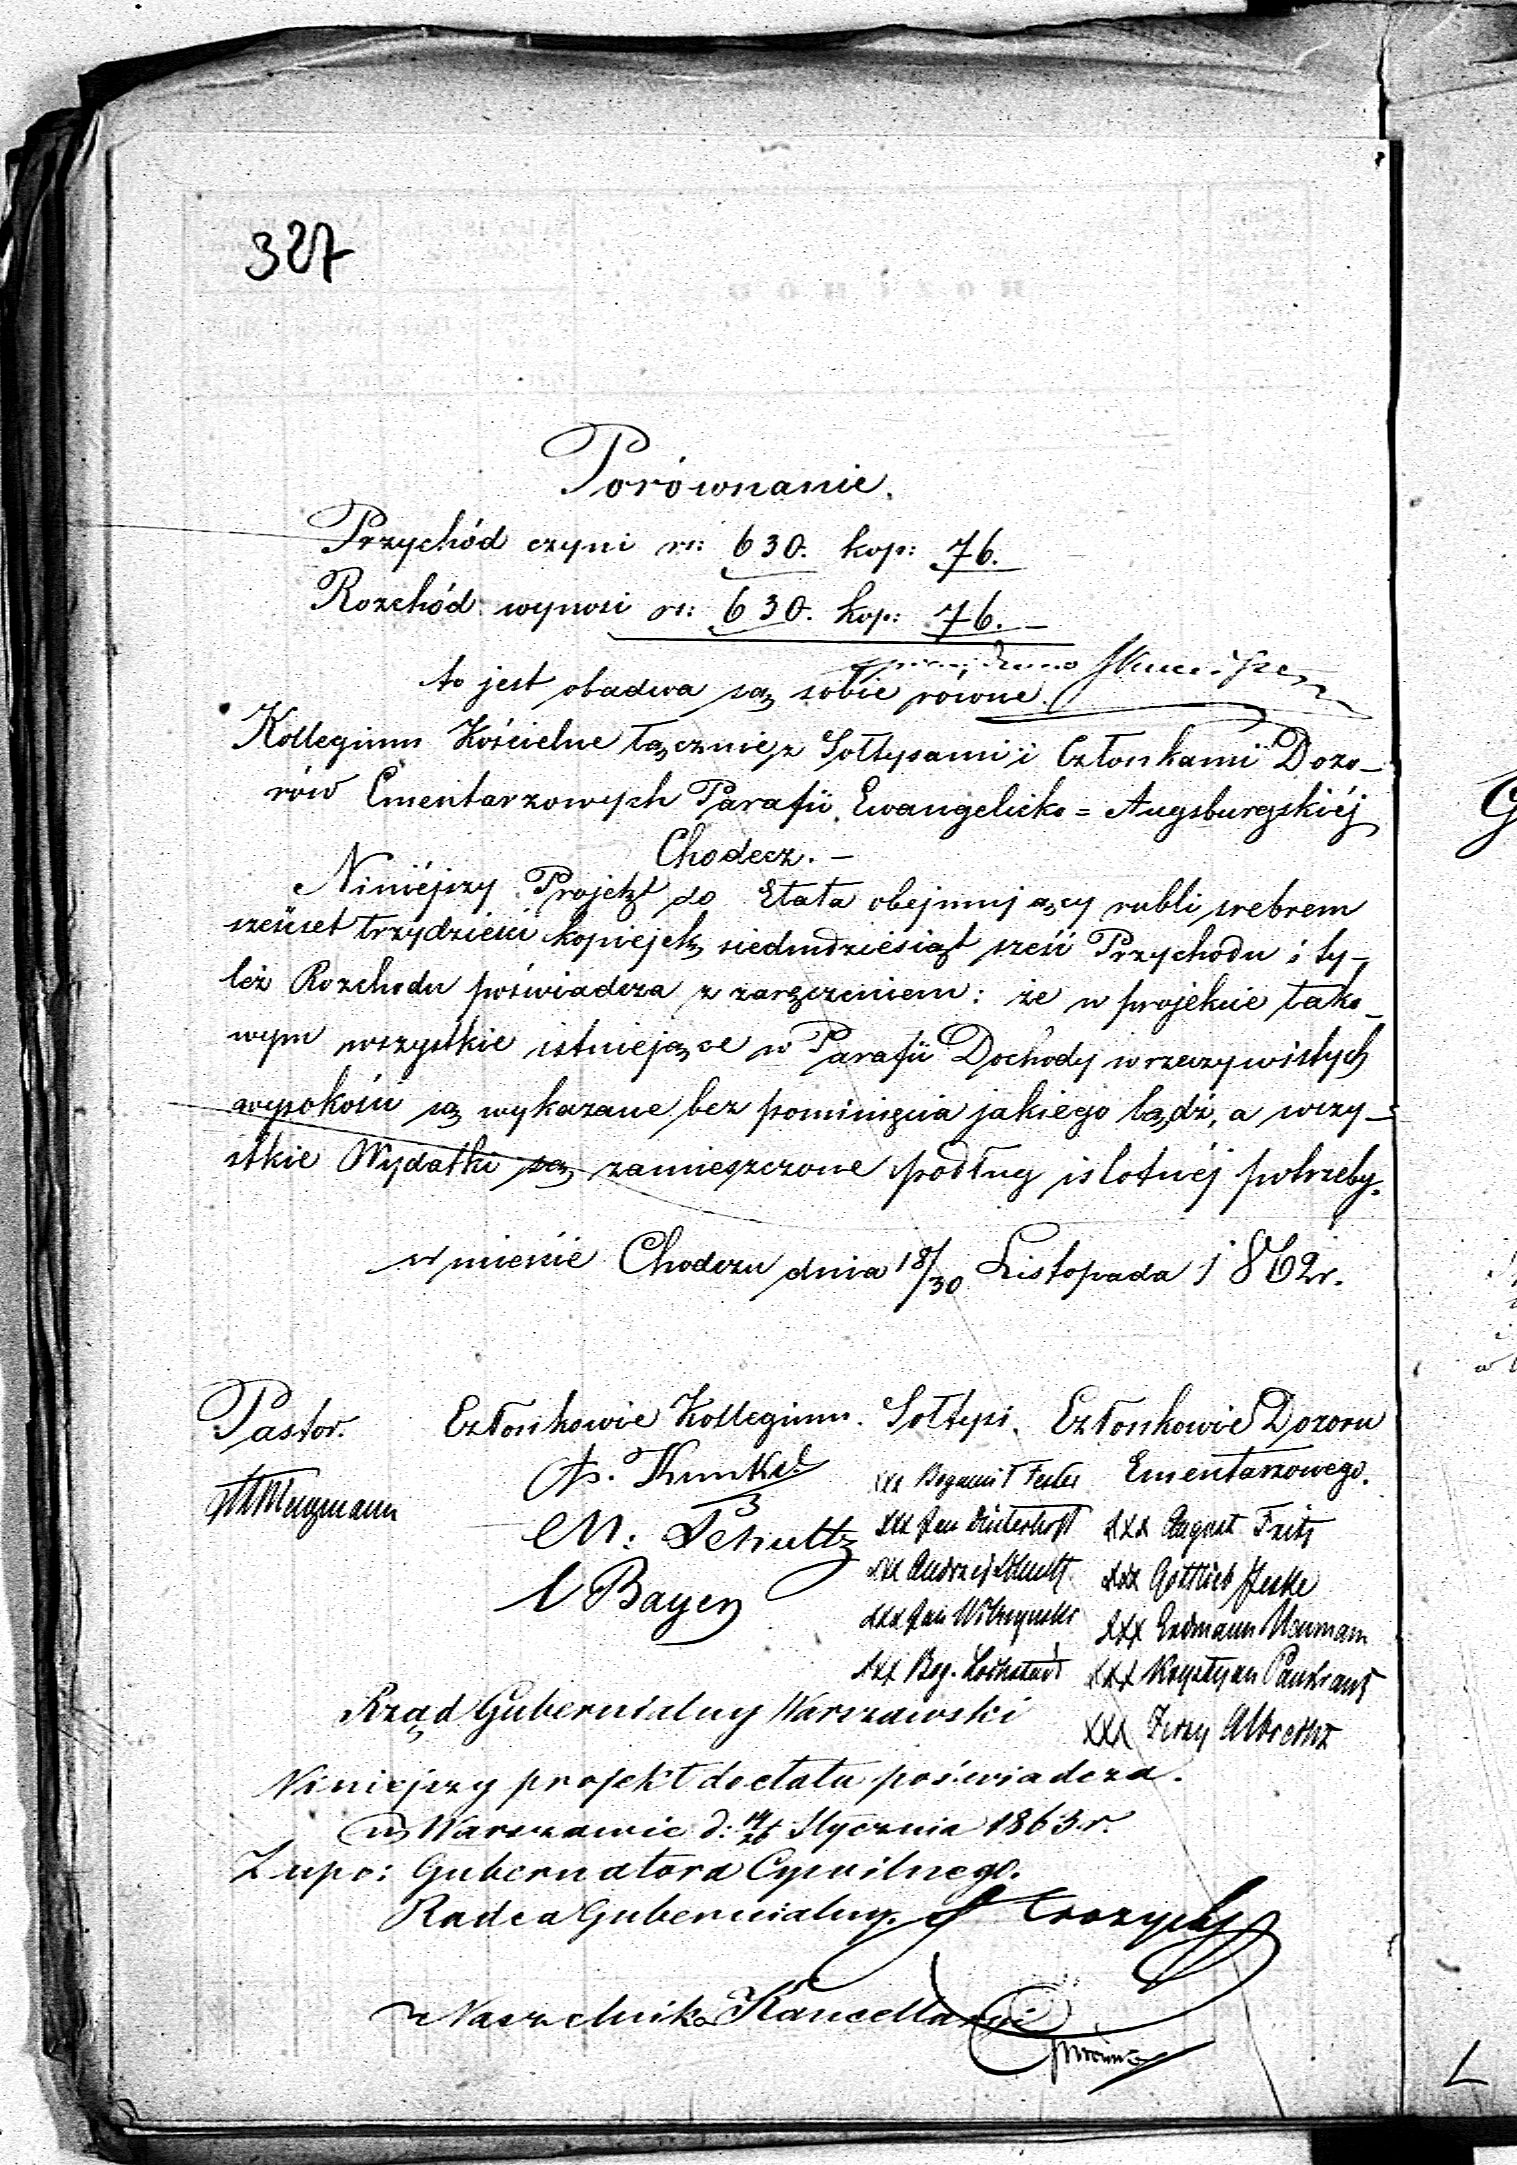 327
Porównanie.
Przychód czyni rs: 630. kop: 76.
Rozchód wynosi rs: 630. kop: 76. —
to jest obadwa są sobie równe.
Kollegium Kościelne łącznie z Sołtysami i Członkami Dozo-
rów Cmentarzowych Parafii Ewangelicko = Augsburgskiéj
Chodecz. —
Niniéjszy Projekt do Etata obejmujący rubli srebrem
sześset trzydzieści kopiejek siedmdziesiąt sześć Przychodu i ty-
leż Rozchodu poświadcza z zaręczeniem: że w projekcie tako-
wym wszystkie istniejące w Parafii Dochody w rzeczywistych
wysokości są wykazane bez pominięcia jakiego bądź, a wszy-
stkie Wydatki są zamieszczone podług istotnéj potrzeby.
w mieście Chodczu dnia 18/30 Listopada 1862 r.
Pastor. Członkowie Kollegium. Sołtysi. Członkowie Dozoru
Cmentarzowego.
A. Kunkel
xxx Bogumił
M. Schultz
xxx Jan xxx August Fritz
xxx Andrzej xxx Gottlieb Jeske
Bayer
xxx Jan xxx Erdmann Neumann
xxx Bog. xxx Krystyan Pankrantz
xxx Jerzy Albrecht
Rząd Gubernialny Warszawski
Niniejszy projekt do etatu poświadcza.
w Warszawie d: 14/26 Stycznia 1863 r.
Z upo: Gubernatora Cywilnego.
Radca Gubernialny.
Naczelnik Kancellaryi